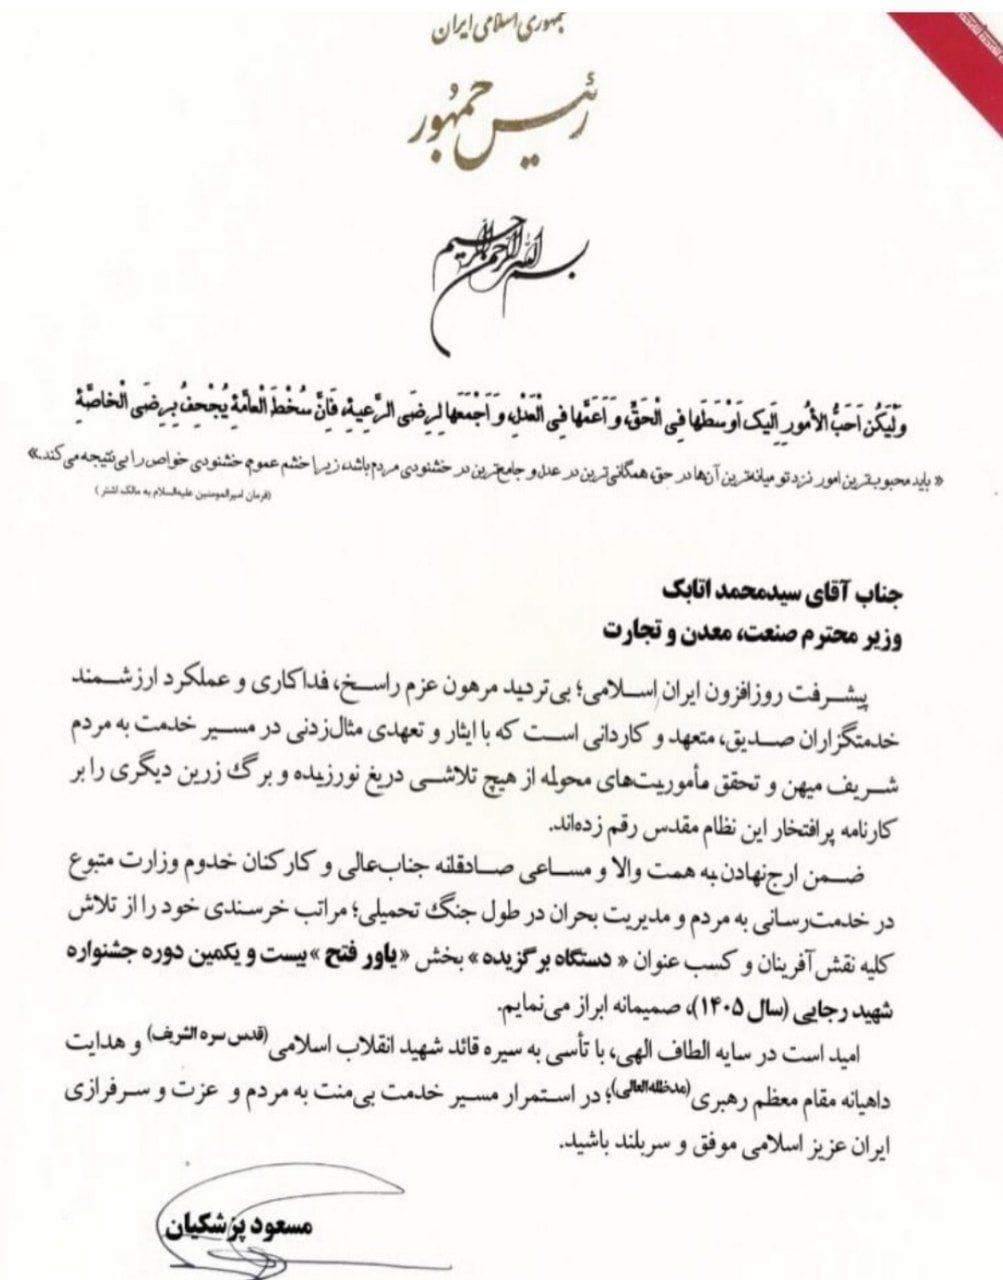 جمهوری اسلامی ایران
رئیس جمهور
بسم الله الرحمن الرحیم
وَلْیَکُن اَحَبُّ الأُمُورِ اِلَیکَ اَوْسَطَها فِی الْحَقِّ، وَ اَعَمَّها فِی الْعَدْلِ، وَ اَجْمَعَها لِرِضَی الرَّعِیةِ، فَاِنَّ سُخْطَ الْعامَّةِ یُجْحِفُ بِرِضَی الْخاصَّةِ
« باید محبوب‌ترین امور نزد تو میانه‌ترین آن‌ها در حق، همگانی‌ترین در عدل و جامع‌ترین در خشنودی مردم باشد، زیرا خشم عموم، خشنودی خواص را بی‌نتیجه می‌کند.»
(فرمان امیرالمومنین علیه‌السلام به مالک اشتر )
جناب آقای سیدمحمد اتابک
وزیر محترم صنعت، معدن و تجارت
پیشرفت روزافزون ایران اسلامی؛ بی‌تردید مرهون عزم راسخ، فداکاری و عملکرد ارزشمند
خدمتگزاران صدیق، متعهد و کاردانی است که با ایثار و تعهدی مثال‌زدنی در مسیر خدمت به مردم
شریف میهن و تحقق مأموریت‌های محوله از هیچ تلاشی دریغ نورزیده و برگ زرین دیگری را بر
کارنامه پرافتخار این نظام مقدس رقم زده‌اند.
ضمن ارج‌نهادن به همت والا و مساعی صادقانه جناب‌عالی و کارکنان خدوم وزارت متبوع
در خدمت‌رسانی به مردم و مدیریت بحران در طول جنگ تحمیلی؛ مراتب خرسندی خود را از تلاش
کلیه نقش‌آفرینان و کسب عنوان « دستگاه برگزیده» بخش «یاور فتح »بیست و یکمین دوره جشنواره
شهید رجایی (سال ۱۴۰۵)، صمیمانه ابراز می‌نمایم.
امید است در سایه الطاف الهی، با تأسی به سیره قائد شهید انقلاب اسلامی(قدس سره الشریف) و هدایت
داهیانه مقام معظم رهبری(مدظله‌العالی)؛ در استمرار مسیر خدمت بی‌منت به مردم و عزت و سرفرازی
ایران عزیز اسلامی موفق و سربلند باشید.
مسعود پزشکیان